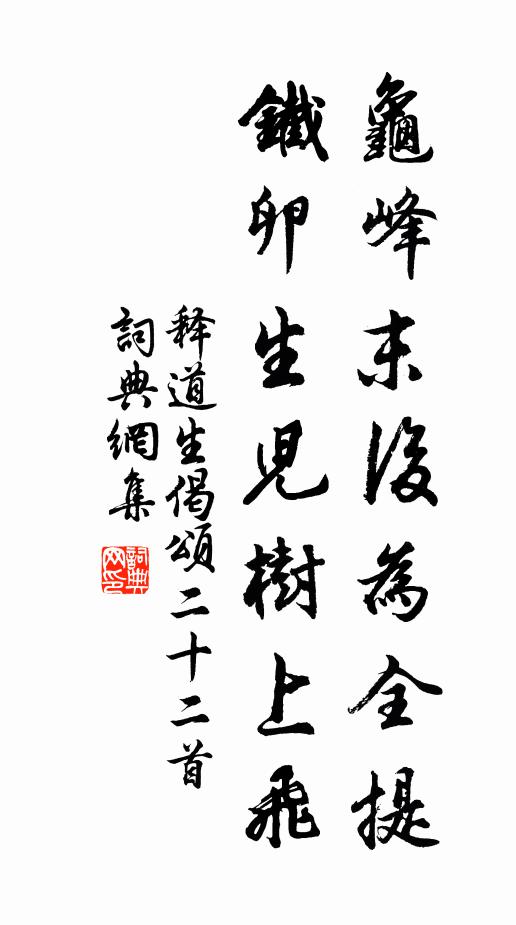 龜峰末後為全提
鐵卵生兒樹上飛
释道生偈頌二十二首
詞典網集
詞典网印